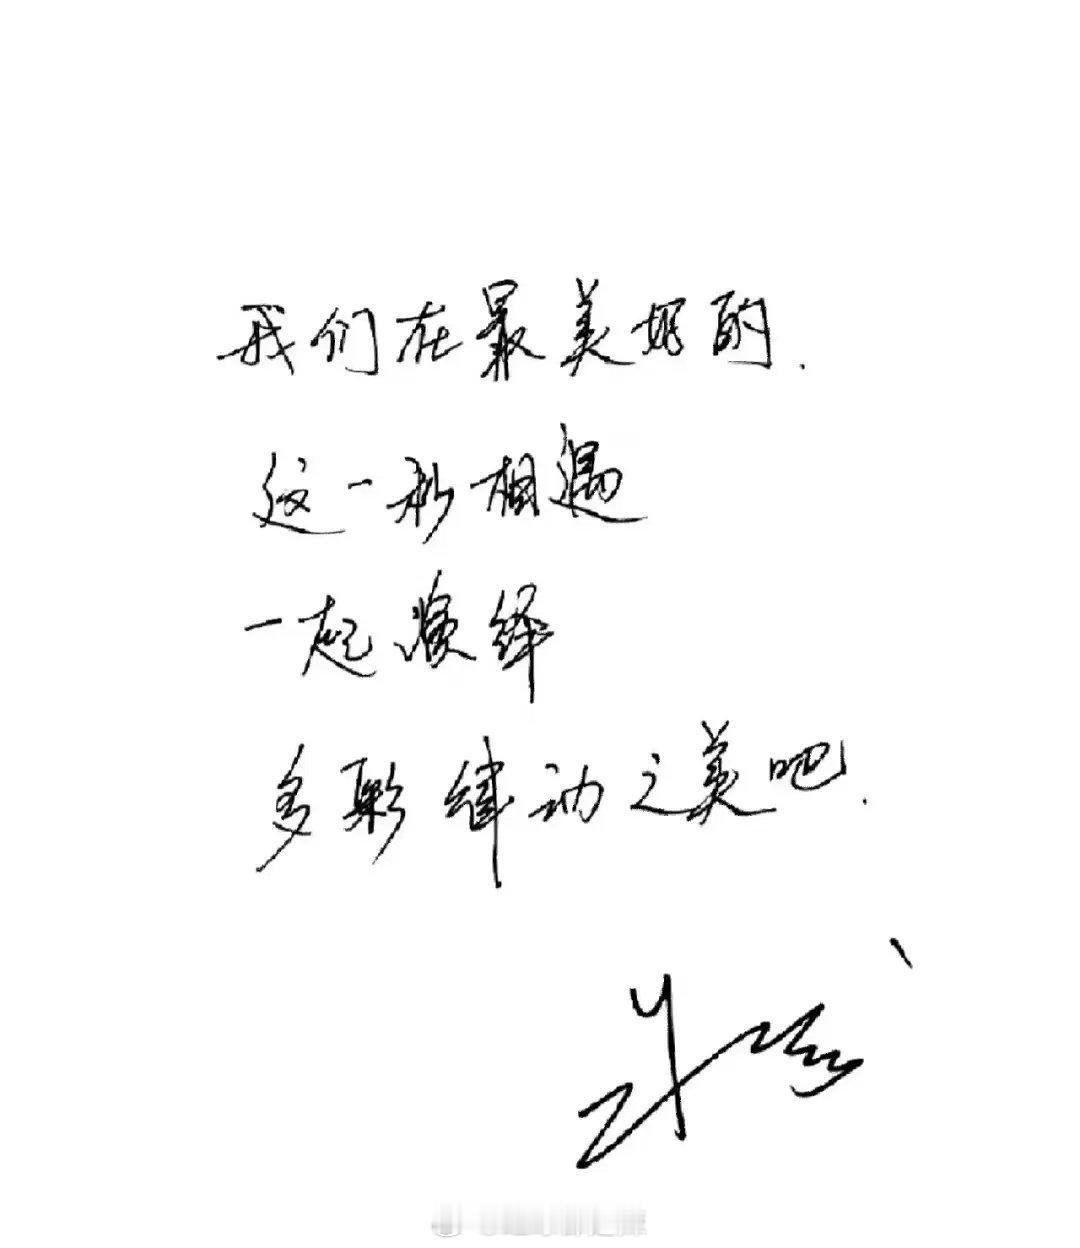 我们在最美好的.
这一秒相遇
一起演绎
多彩律动之美吧.